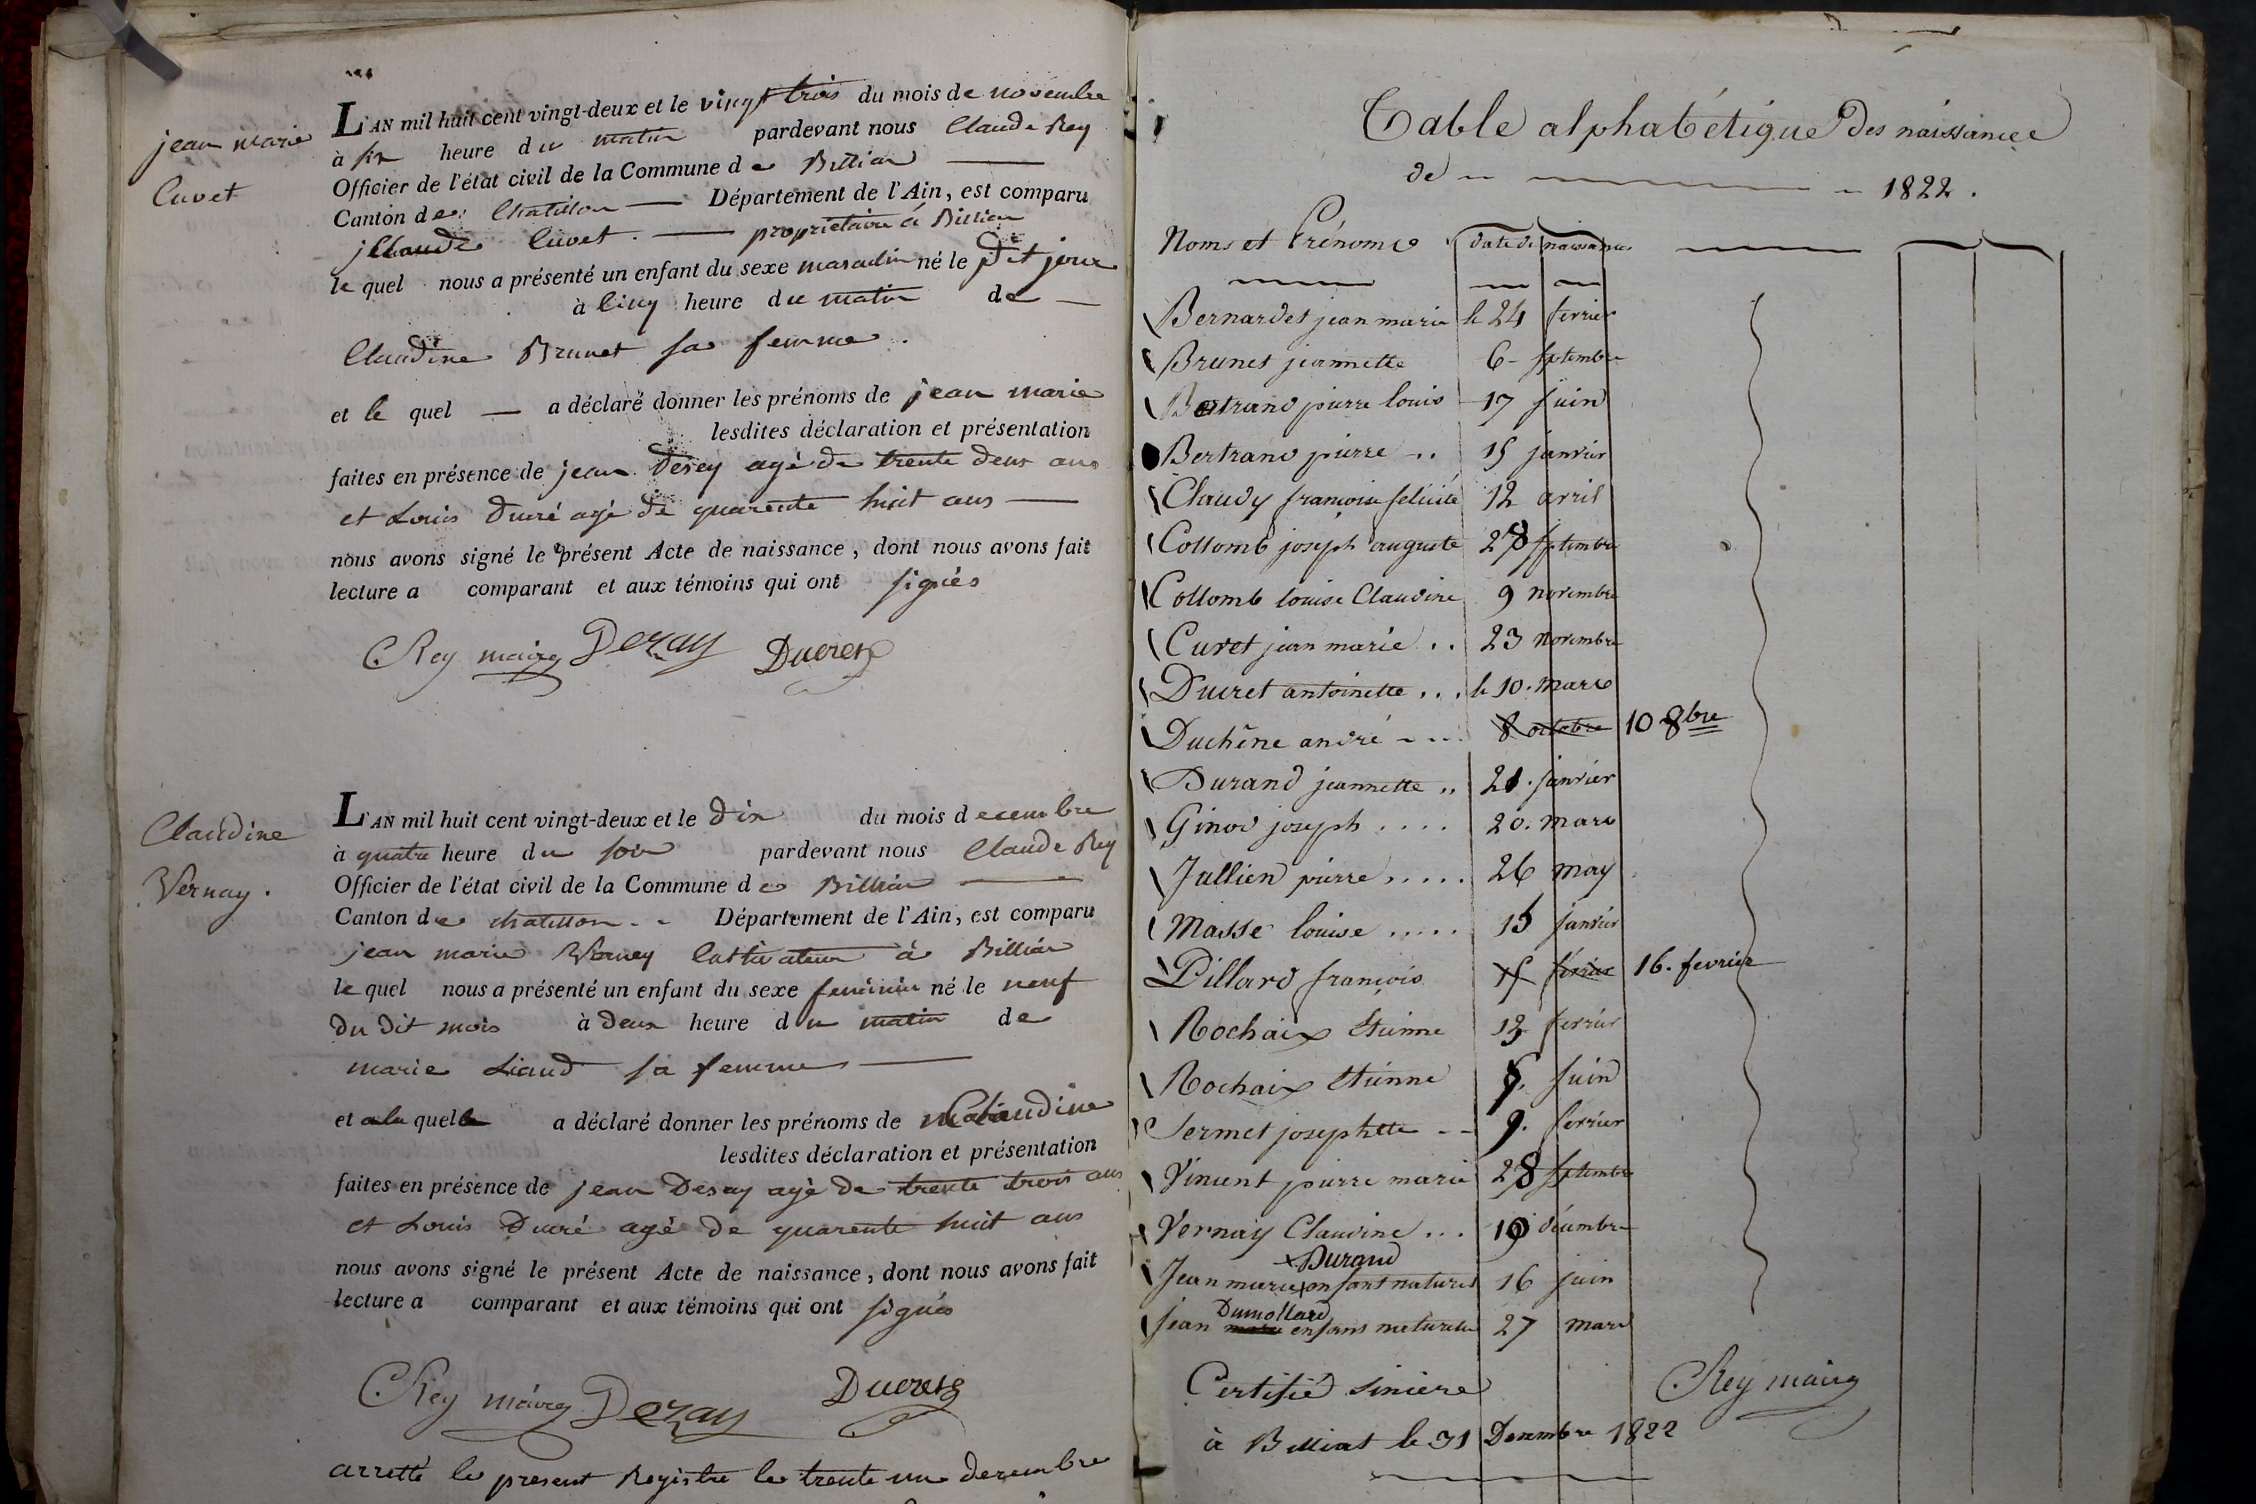 jean marie
Cuvet
L'AN mil huit cent vingt-deux et le vingt trois du mois de novembre
à six heure du matin pardevant nous Claude Rey
Officier de l'état civil de la Commune de Billiat
Canton de Chatillon Département de l'Ain, est comparu
Claude Cuvet propriétaire à Billiat
le quel nous a présenté un enfant du sexe masculin né le dit jour
à cinq heure du matin de
Claudine Brunet sa femme.
et le quel a déclaré donner les prénoms de jean marie
lesdites déclaration et présentation
faites en présence de jean Desey agé de trente deux ans
et Louis Ducré agé de quarente huit ans
nous avons signé le présent Acte de naissance, dont nous avons fait
lecture a comparant et aux témoins qui ont signés
CRey maire Dezay Ducret
Claudine
Vernay.
L'AN mil huit cent vingt-deux et le dix du mois decembre
à quatre heure du soir pardevant nous Claude Rey
Officier de l'état civil de la Commune de Billiat
Canton de chatillon Département de l'Ain, est comparu
jean marie Verney Cultivateur à Billiat
le quel nous a présenté un enfant du sexe feminin né le neuf
du dit mois à deux heure du matin de
marie Liaud sa femme
et a la quelle a déclaré donner les prénoms de Claudine
lesdites déclaration et présentation
faites en présence de jean Desay agé de trente trois ans
et Louis Ducré agé de quarente huit ans
nous avons signé le présent Acte de naissance, dont nous avons fait
lecture a comparant et aux témoins qui ont signés
CRey maire Dezay Ducret
arretté le present Registre le trente un decembre
Table alphabétique des naissance
de 1822.
Noms et Prénoms date de naissances
Bernardet jean marie le 24 fevrier
Brunet jeannette 6 septembre
Bertrand pierre louis 17 juin
Bertrand pierre .. 15 janvier
Claudy françoise felicité 12 avril
Collomb joseph auguste 28 septembre
Collomb louise Claudine 9 novembre
Cuvet jean marie .. 23 novembre
Ducret antoinette ... le 10. mars
Duchêne andré 8 octobre 10 8bre
Durand jeannette .. 21. janvier
Ginod joseph .... 20. mars
Jullien pierre ..... 26 may
Masse louise ..... 15 janvier
Pillard françois 15 février 16. fevrier
Rochaix Etienne 12 fevrier
Rochaix Etienne 5. juin
Sermet josephette 9. fevrier
Vincent pierre marie 28 septembre
Vernay Claudine ... 10 décembre
Durand
Jean marie enfant naturel 16 juin
Dumollard
jean enfans naturelle 27 mars
Certifié sincere CRey maire
à Billiat le 31 Decembre 1822